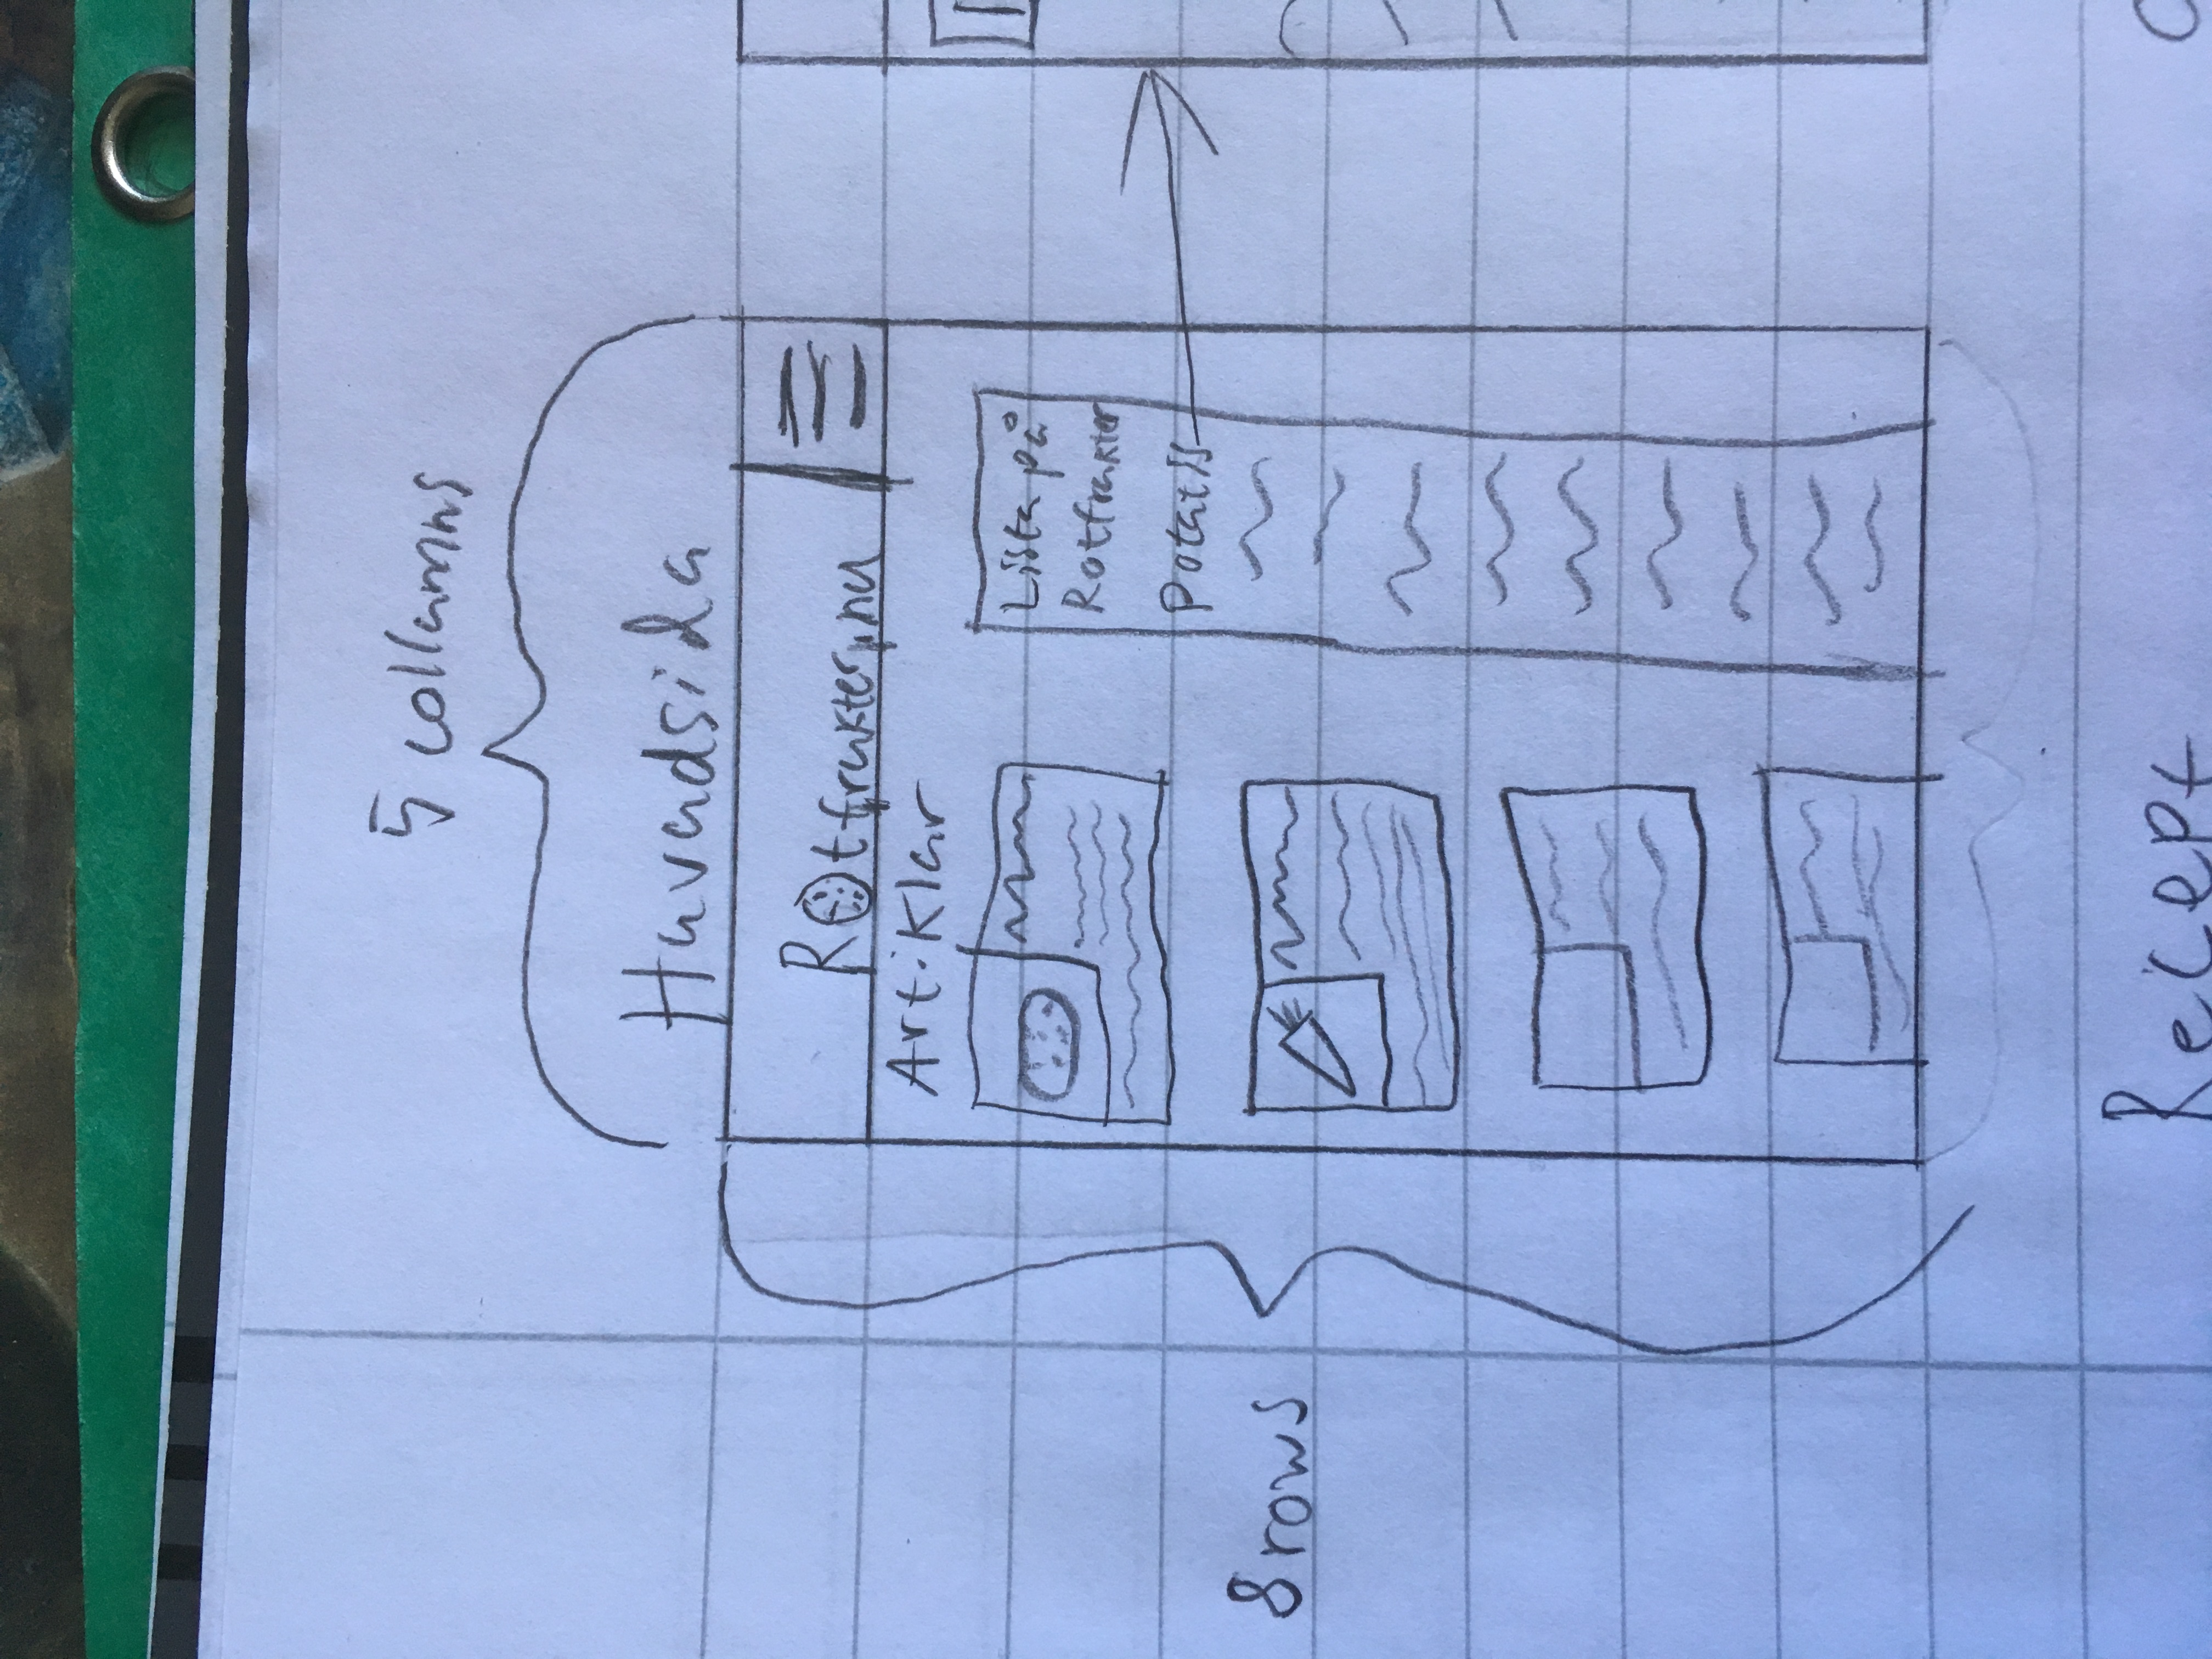 5 collumns
Huvudsida
Rotfrukter.nu
Artiklar
Lista på
Rotfrukter
Potatis
8 rows
Recept